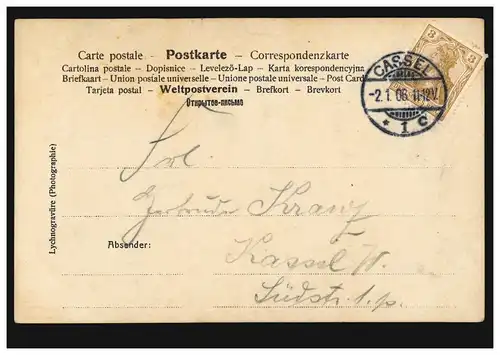 Carte postale - Postkarte - Correspondenzkarte
Cartolina postale - Dopisnice - Levelező-Lap - Karta korespondencyjna
Briefkaart - Union postale universelle - Unione postale universale - Post Card
Tarjeta postal - Weltpostverein - Brefkort - Brevkort
Открытое-письмо
3 3
CASSEL
-2.1.06.11-12V.
* 1 C
Frl.
Gertrude Kranz
Kassel W.
Südstr. 1. p.
Absender:
Lychnogravüre (Photographie)